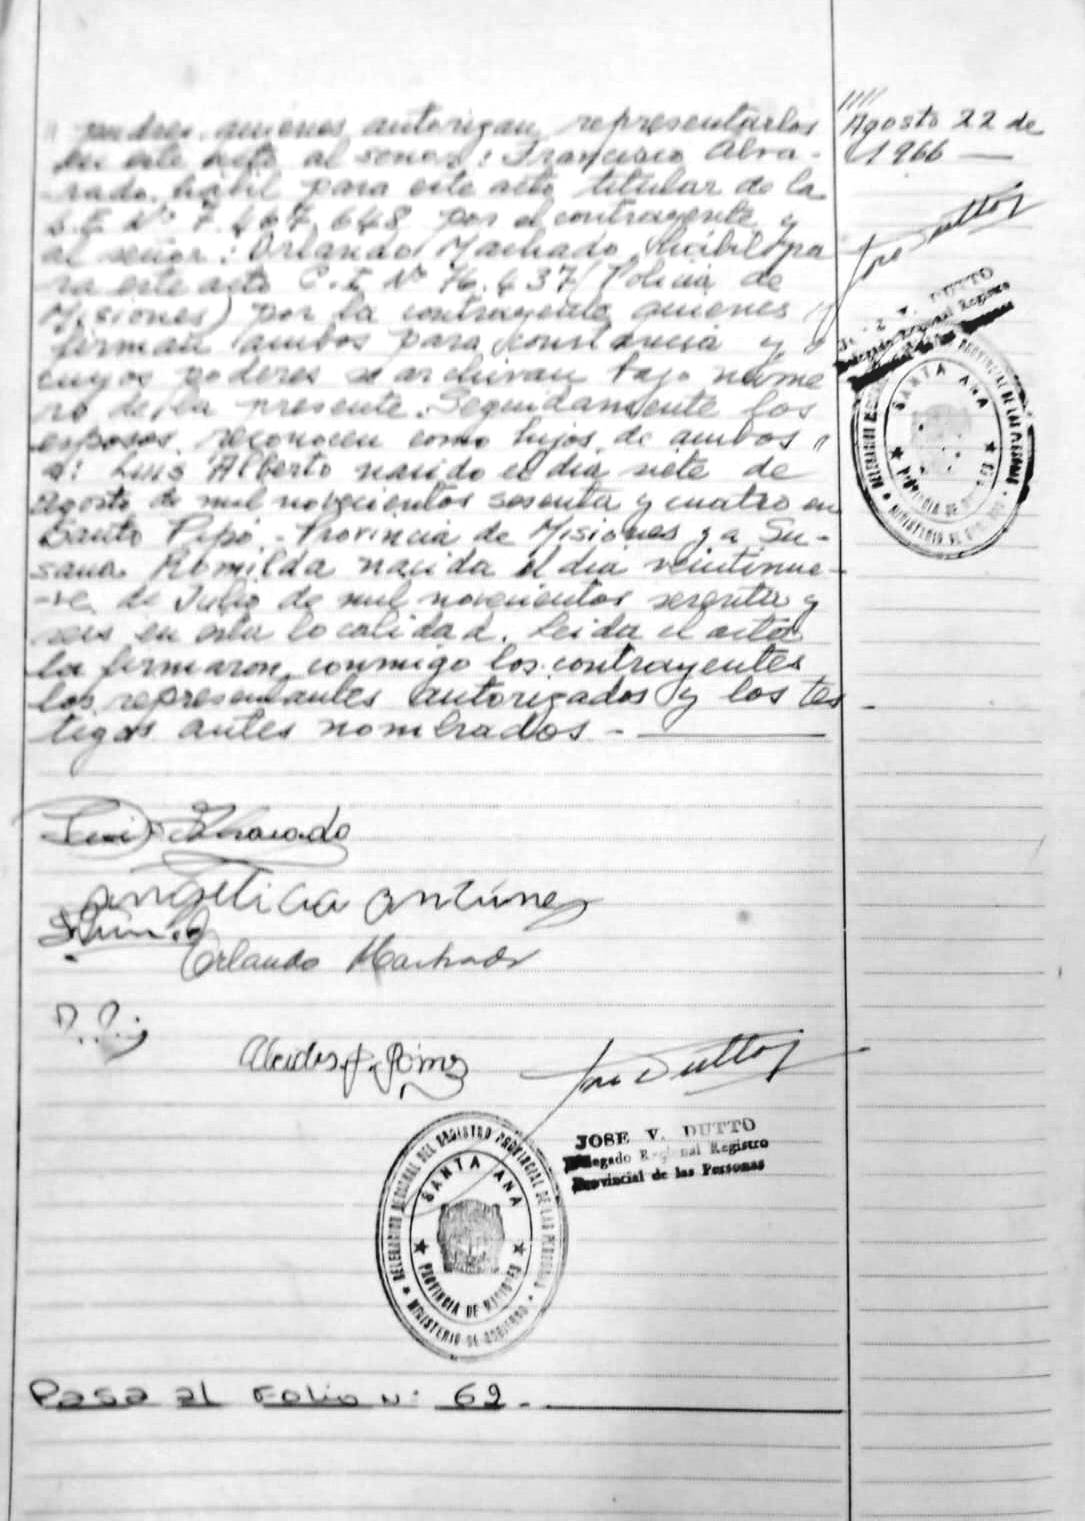 " padres, quienes autorizan representarlos
en este acto al señor: Francisco Alva-
rado, hábil para este acto, titular de la
L.E Nº 7.467.648 por el contrayente y
al señor: Orlando Machado, hábil pa
ra este acto C.I Nº 76.437/ Policia de
Misiones) por la contrayente quienes
firman ambos para constancia y
cuyos poderes se archivan bajo nume
ro de la presente. Seguidamente los
esposos, reconocen como hijos de ambos "
a: Luis Alberto nacido el dia siete de
agosto de mil novecientos sesenta y cuatro en
Santo Pipó - Provincia de Misiones y a Su-
sana Romilda nacida el dia veintinue-
-ve de Julio de mil novecientos sesenta y
seis en esta localidad. Leida el acta
la firmaron, conmigo los contrayentes
los representantes autorizados y los tes -
tigos antes nombrados -
////
Agosto 22 de
1966
Jose Dutto
V. DUTTO
Delegado Regional Registro
DELEGACION REGIONAL DEL REGISTRO PROVINCIAL DE LAS PERSONAS
SANTA ANA
PROVINCIA DE MISIONES
MINISTERIO DE GOBIERNO
Luis Alvarado
Angelica Antúnez
Orlando Machado
Alcides Gómez
Jose Dutto
JOSE V. DUTTO
Delegado Regional Registro
Provincial de las Personas
DELEGACION REGIONAL DEL REGISTRO PROVINCIAL DE LAS PERSONAS
SANTA ANA
PROVINCIA DE MISIONES
MINISTERIO DE GOBIERNO
Pasa al Folio Nº 62.-